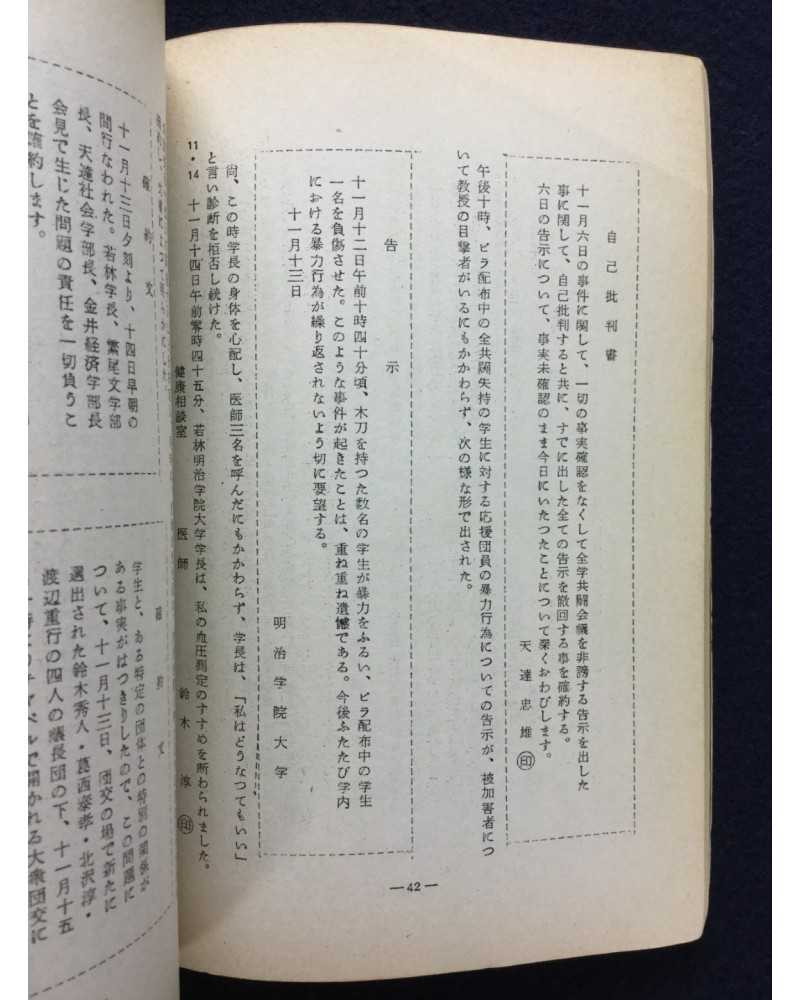 自己批判書
十一月六日の事件に関して、一切の事実確認をなくして全学共闘会議を非謗する告示を出した
事に関して、自己批判すると共に、すでに出した全ての告示を撤回する事を確約する。
六日の告示について、事実未確認のまま今日にいたつたことについて深くおわびします。
天達忠雄㊞
午後十時、ビラ配布中の全共闘支持の学生に対する応援団員の暴力行為についての告示が、被加害者につ
いて教授の目撃者がいるにもかかわらず、次の様な形で出された。
告示
十一月十二日午前十時四十分頃、木刀を持つた数名の学生が暴力をふるい、ビラ配布中の学生
一名を負傷させた。このような事件が起きたことは、重ね重ね遺憾である。今後ふたたび学内
における暴力行為が繰り返されないよう切に要望する。
十一月十三日
明治学院大学
尚、この時学長の身体を心配し、医師三名を呼んだにもかかわらず、学長は、「私はどうなつてもいい」
と言い診断を拒否し続けた。
11・14 十一月十四日午前零時四十五分、若林明治学院大学学長は、私の血圧測定のすすめを断わられました。
健康相談室 医師 鈴木淳㊞
—42—
確約文
十一月十三日夕刻より、十四日早朝の
間行なわれた。若林学長、繁尾文学部
長、天達社会学部長、金井経済学部長
会見で生じた問題の責任を一切負うこ
とを確約します。
確約文
学生と、ある特定の団体との特別の関係が
ある事実がはつきりしたので、この問題に
ついて、十一月十三日、団交の場で新たに
選出された鈴木秀人・葛西泰孝・北沢淳・
渡辺重行の四人の議長団の下、十一月十五
で開かれる大衆団交に